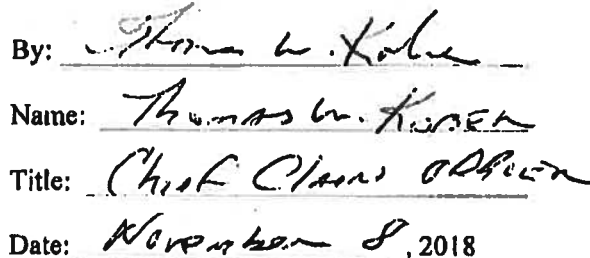 By: Thomas W. Kober
Name: Thomas W. Kober
Title: Chief Claims Officer
Date: November 8, 2018